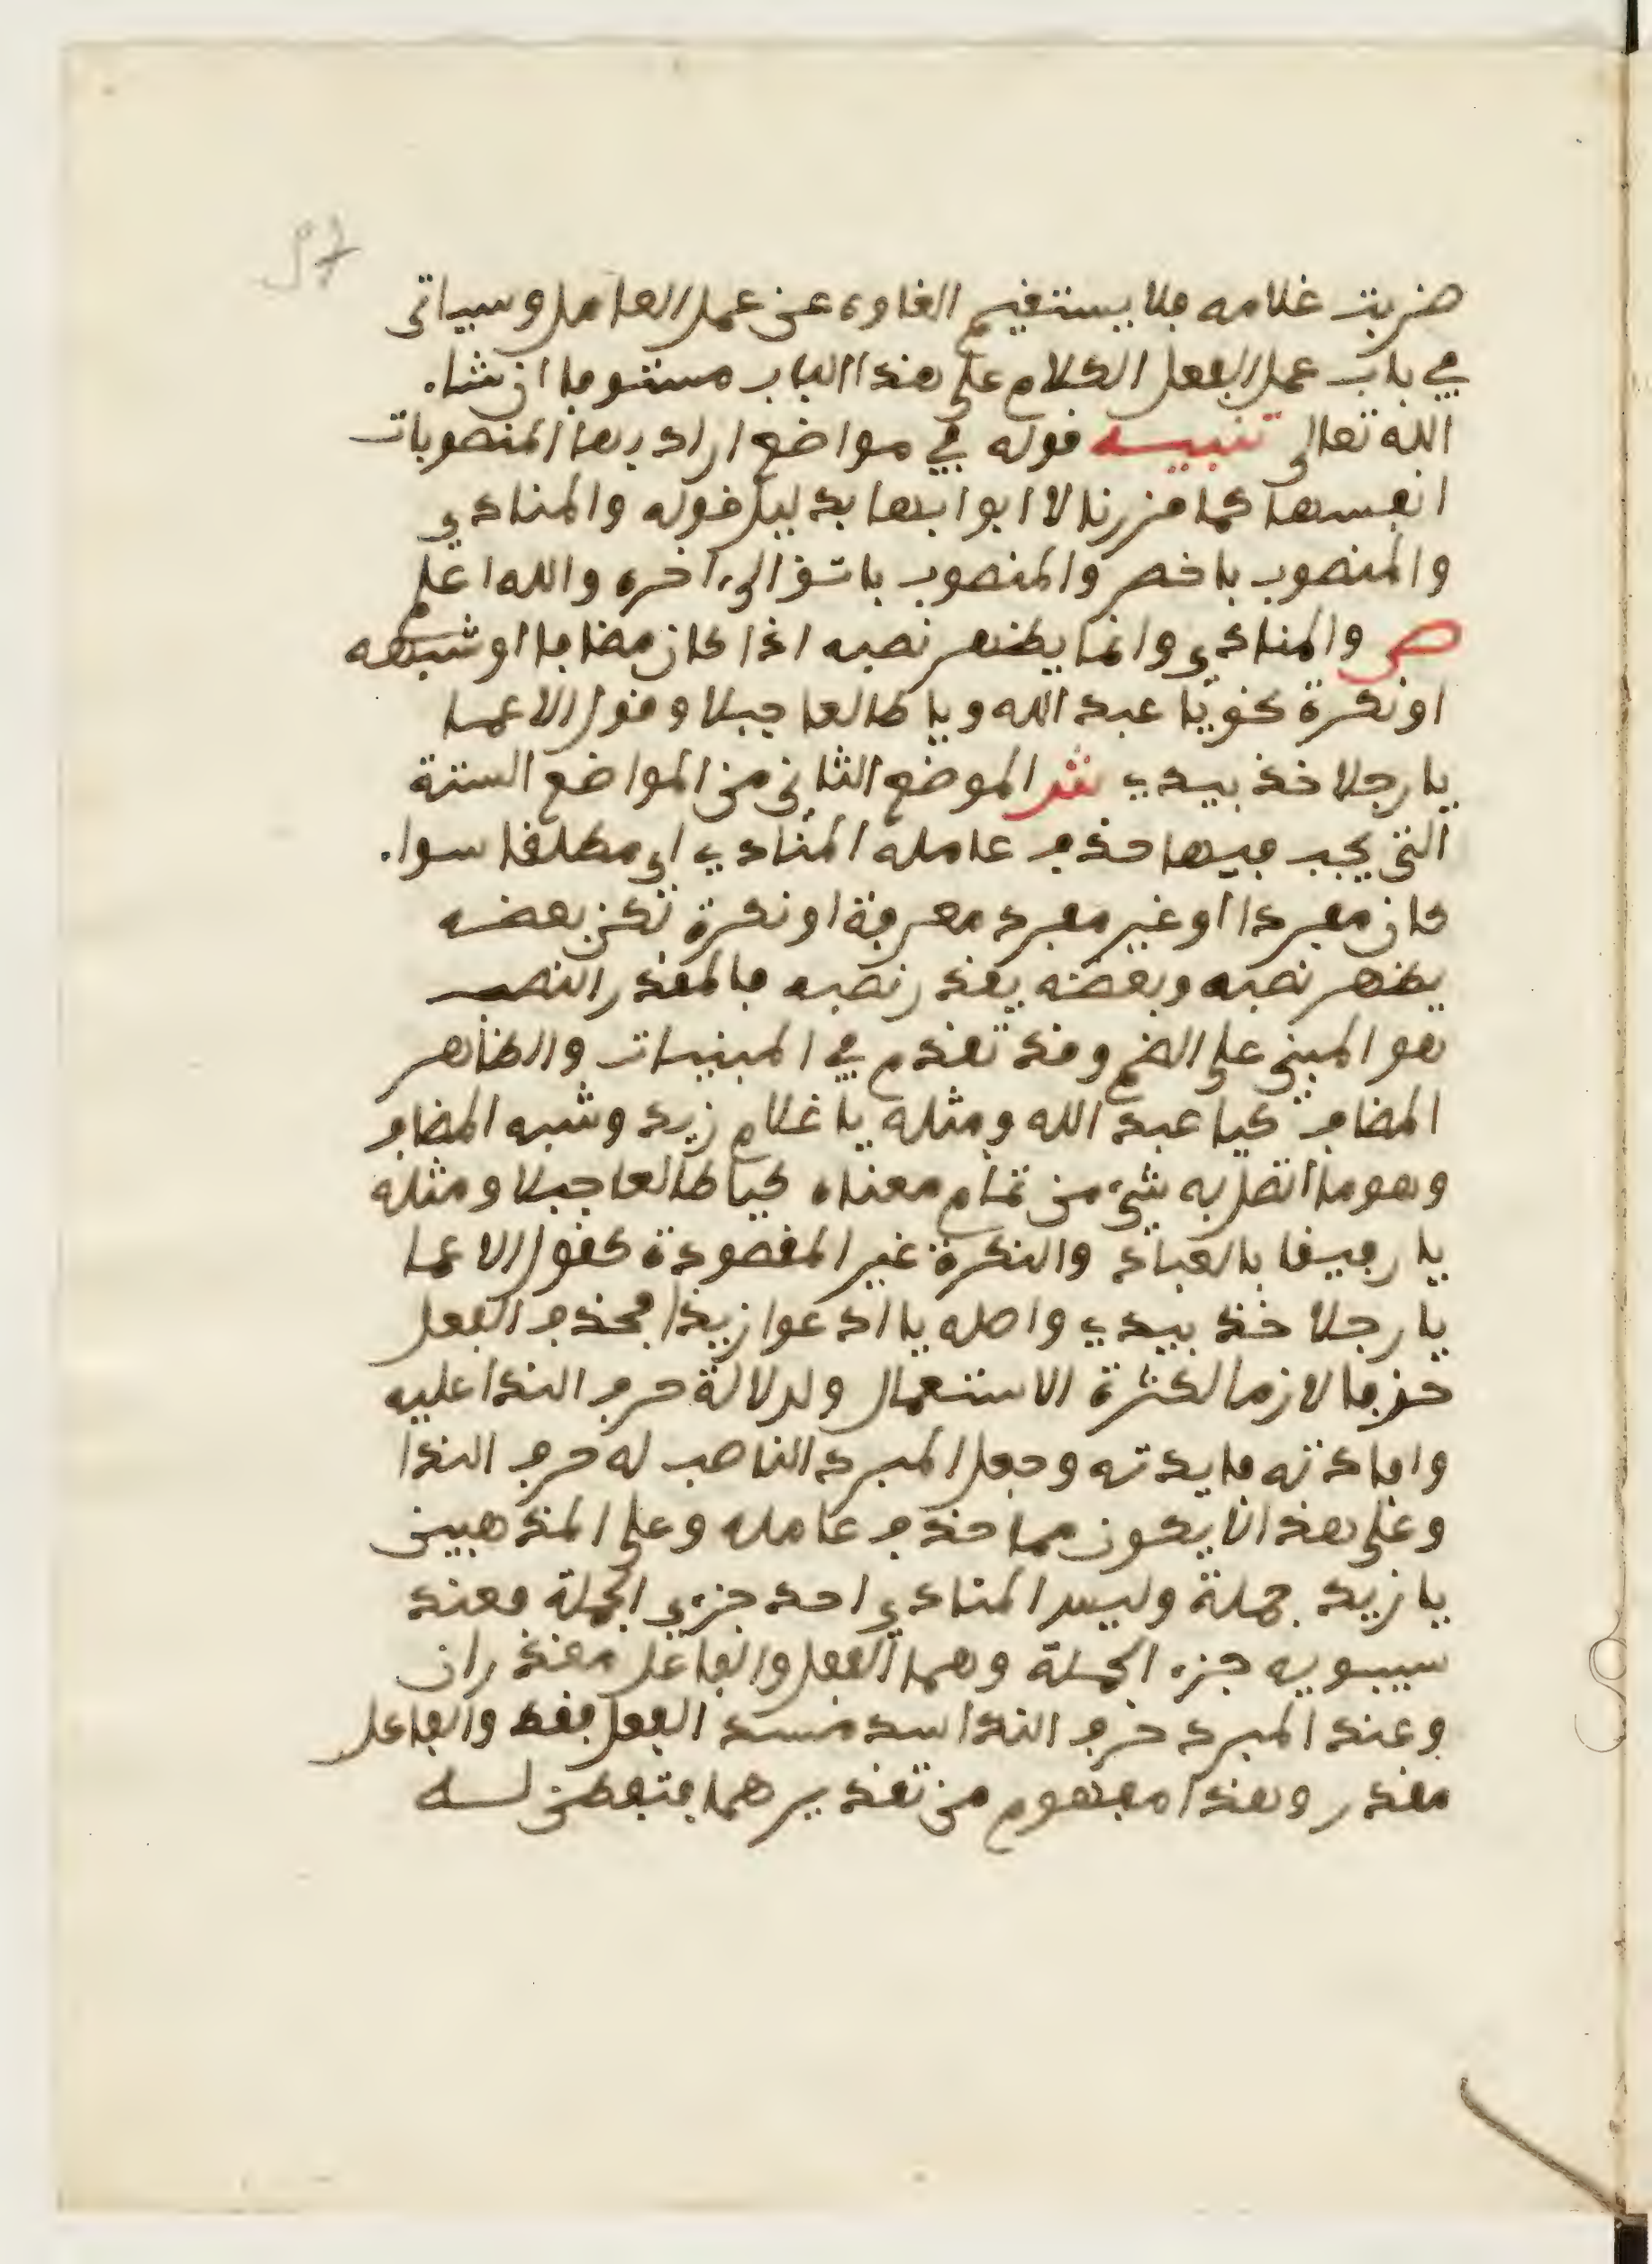 ضربت غلامه فلا يستقيم الغاوه عن عمل العامل وسياتى
في باب عمل الفعل الكلام على هذا الباب مستوفا ان شاء
الله تعالى تنبيه قوله في مواضع اراد بها المنصوبات
انفسها كما قررنا لا ابوابها بدليل قوله والمنادي
والمنصوب باخص والمنصوب باتق الى اخره والله اعلم
ص والمنادي وانما يظهر نصبه اذا كان مضافا او شبهه
او نكرة نحو يا عبد الله ويا طالعا جبلا وقول الاعما
يا رجلا خذ بيدي ش الموضع الثاني من المواضع الستة
التي يجب فيها حذف عامله المنادي اي مطلقا سواء
كان مفردا او غير مفرد معرفة او نكرة لكن بعضه
يظهر نصبه وبعضه يقدر نصبه فالمقدر النصب
هو المبني على الضم وقد تقدم في المبنيات والظاهر
المضاف كيا عبد الله ومثله يا غلام زيد وشبه المضاف
وهو ما اتصل به شيء من تمام معناه كيا طالعا جبلا ومثله
يا رفيقا بالعباد والنكرة غير المقصودة كقول الاعما
يا رجلا خذ بيدي واصله يا ادعوا زيدا فحذف الفعل
حذفا لازما لكثرة الاستعمال ولدلالة حرف الندا عليه
وافادته فايدته وجعل المبرد الناصب له حرف الندا
وعلى هذا لا يكون مما حذف عامله وعلى المذهبين
يا زيد جملة وليس المنادي احد جزءي الجملة فعند
سيبويه جزء الجملة وهما الفعل والفاعل مقدران
وعند المبرد حرف الندا سد مسد الفعل فقط والفاعل
مقدر وهذا مفهوم من تقديرهما فتفطن له